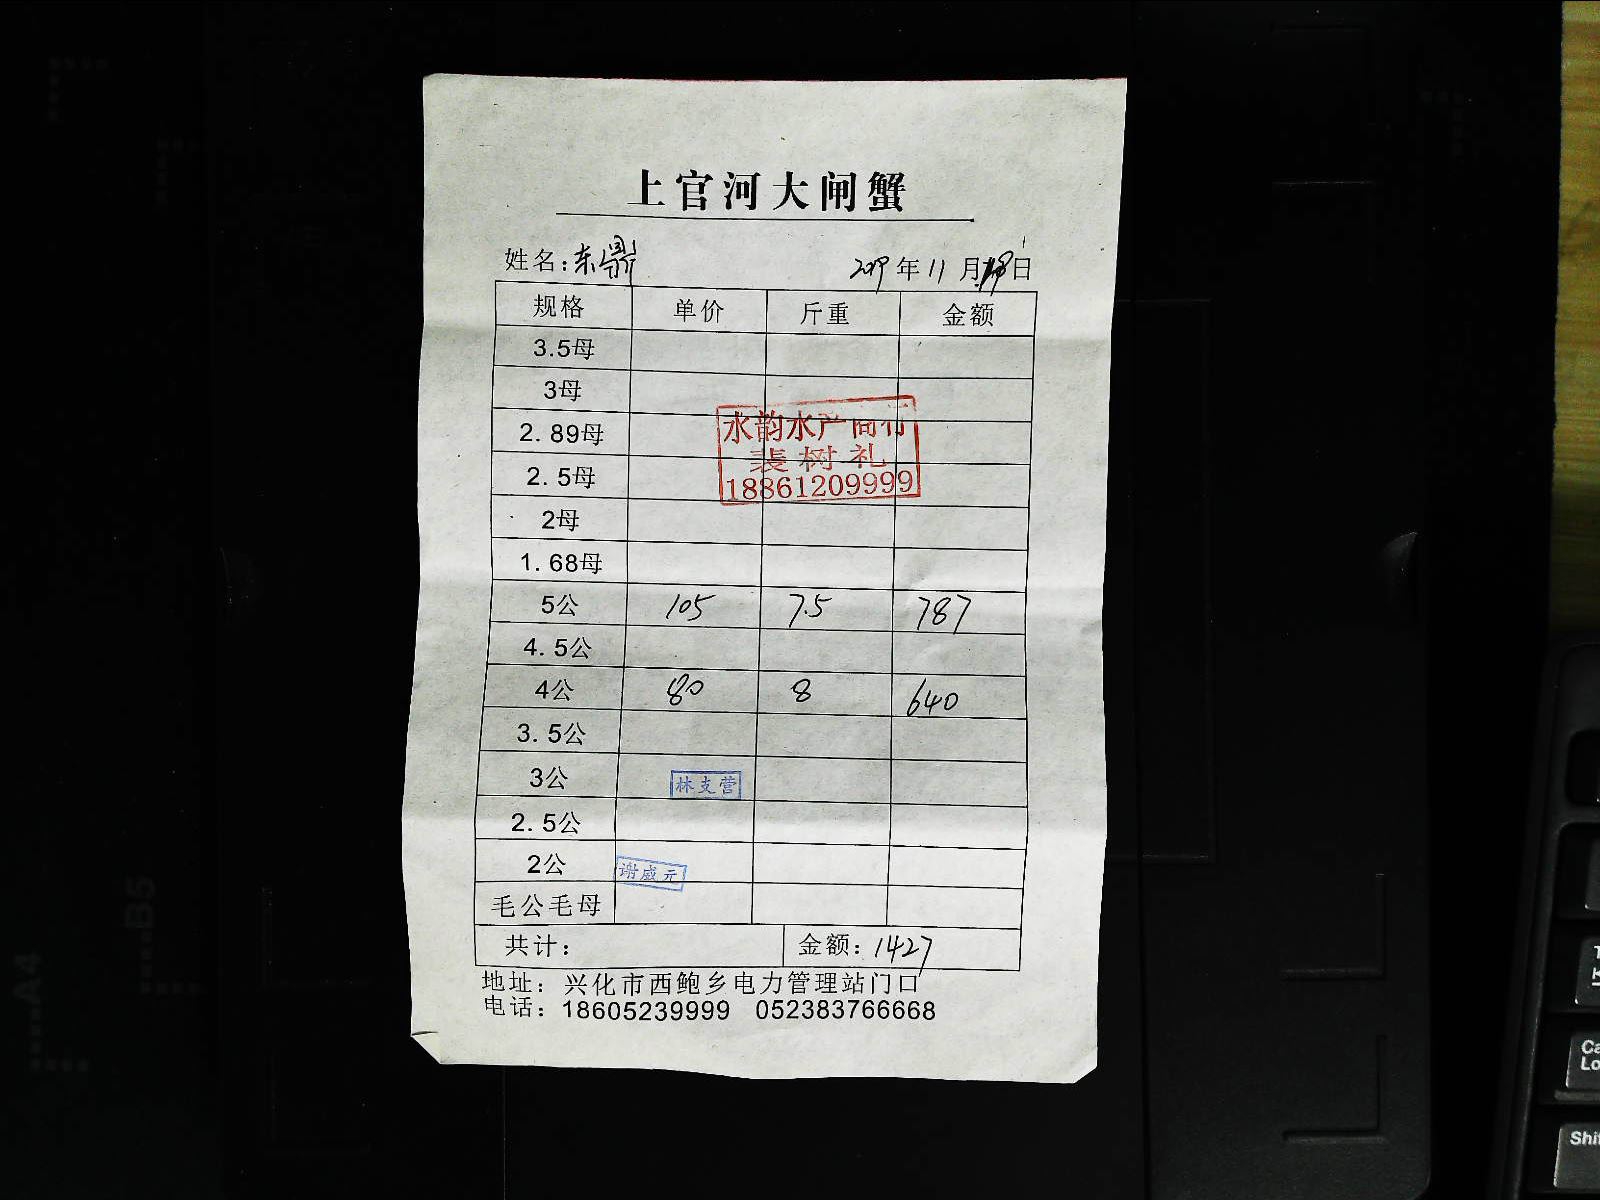 上官河大闸蟹
姓名：东鼎 2019年11月19日
规格 单价 斤重 金额
3.5母
3母
2.89母
2.5母
水韵水产商行
裴树礼
18861209999
2母
1.68母
5公 105 7.5 787
4.5公
4公 80 8 640
3.5公
3公
林支营
2.5公
2公
谢盛元
毛公毛母
共计： 金额：1427
地址：兴化市西鲍乡电力管理站门口
电话：18605239999 052383766668
A4
B5
Ca
Lo
Shi